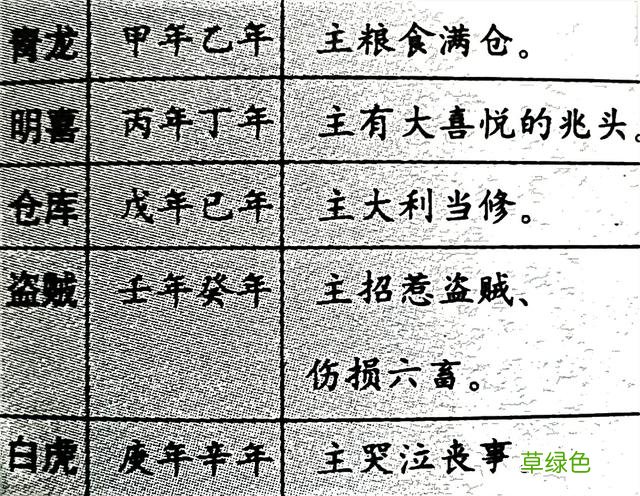 青龙 甲年乙年 主粮食满仓。
明喜 丙年丁年 主有大喜悦的兆头。
仓库 戊年已年 主大利当修。
盗贼 壬年癸年 主招惹盗贼、
伤损六畜。
白虎 庚年辛年 主哭泣丧事
草绿色